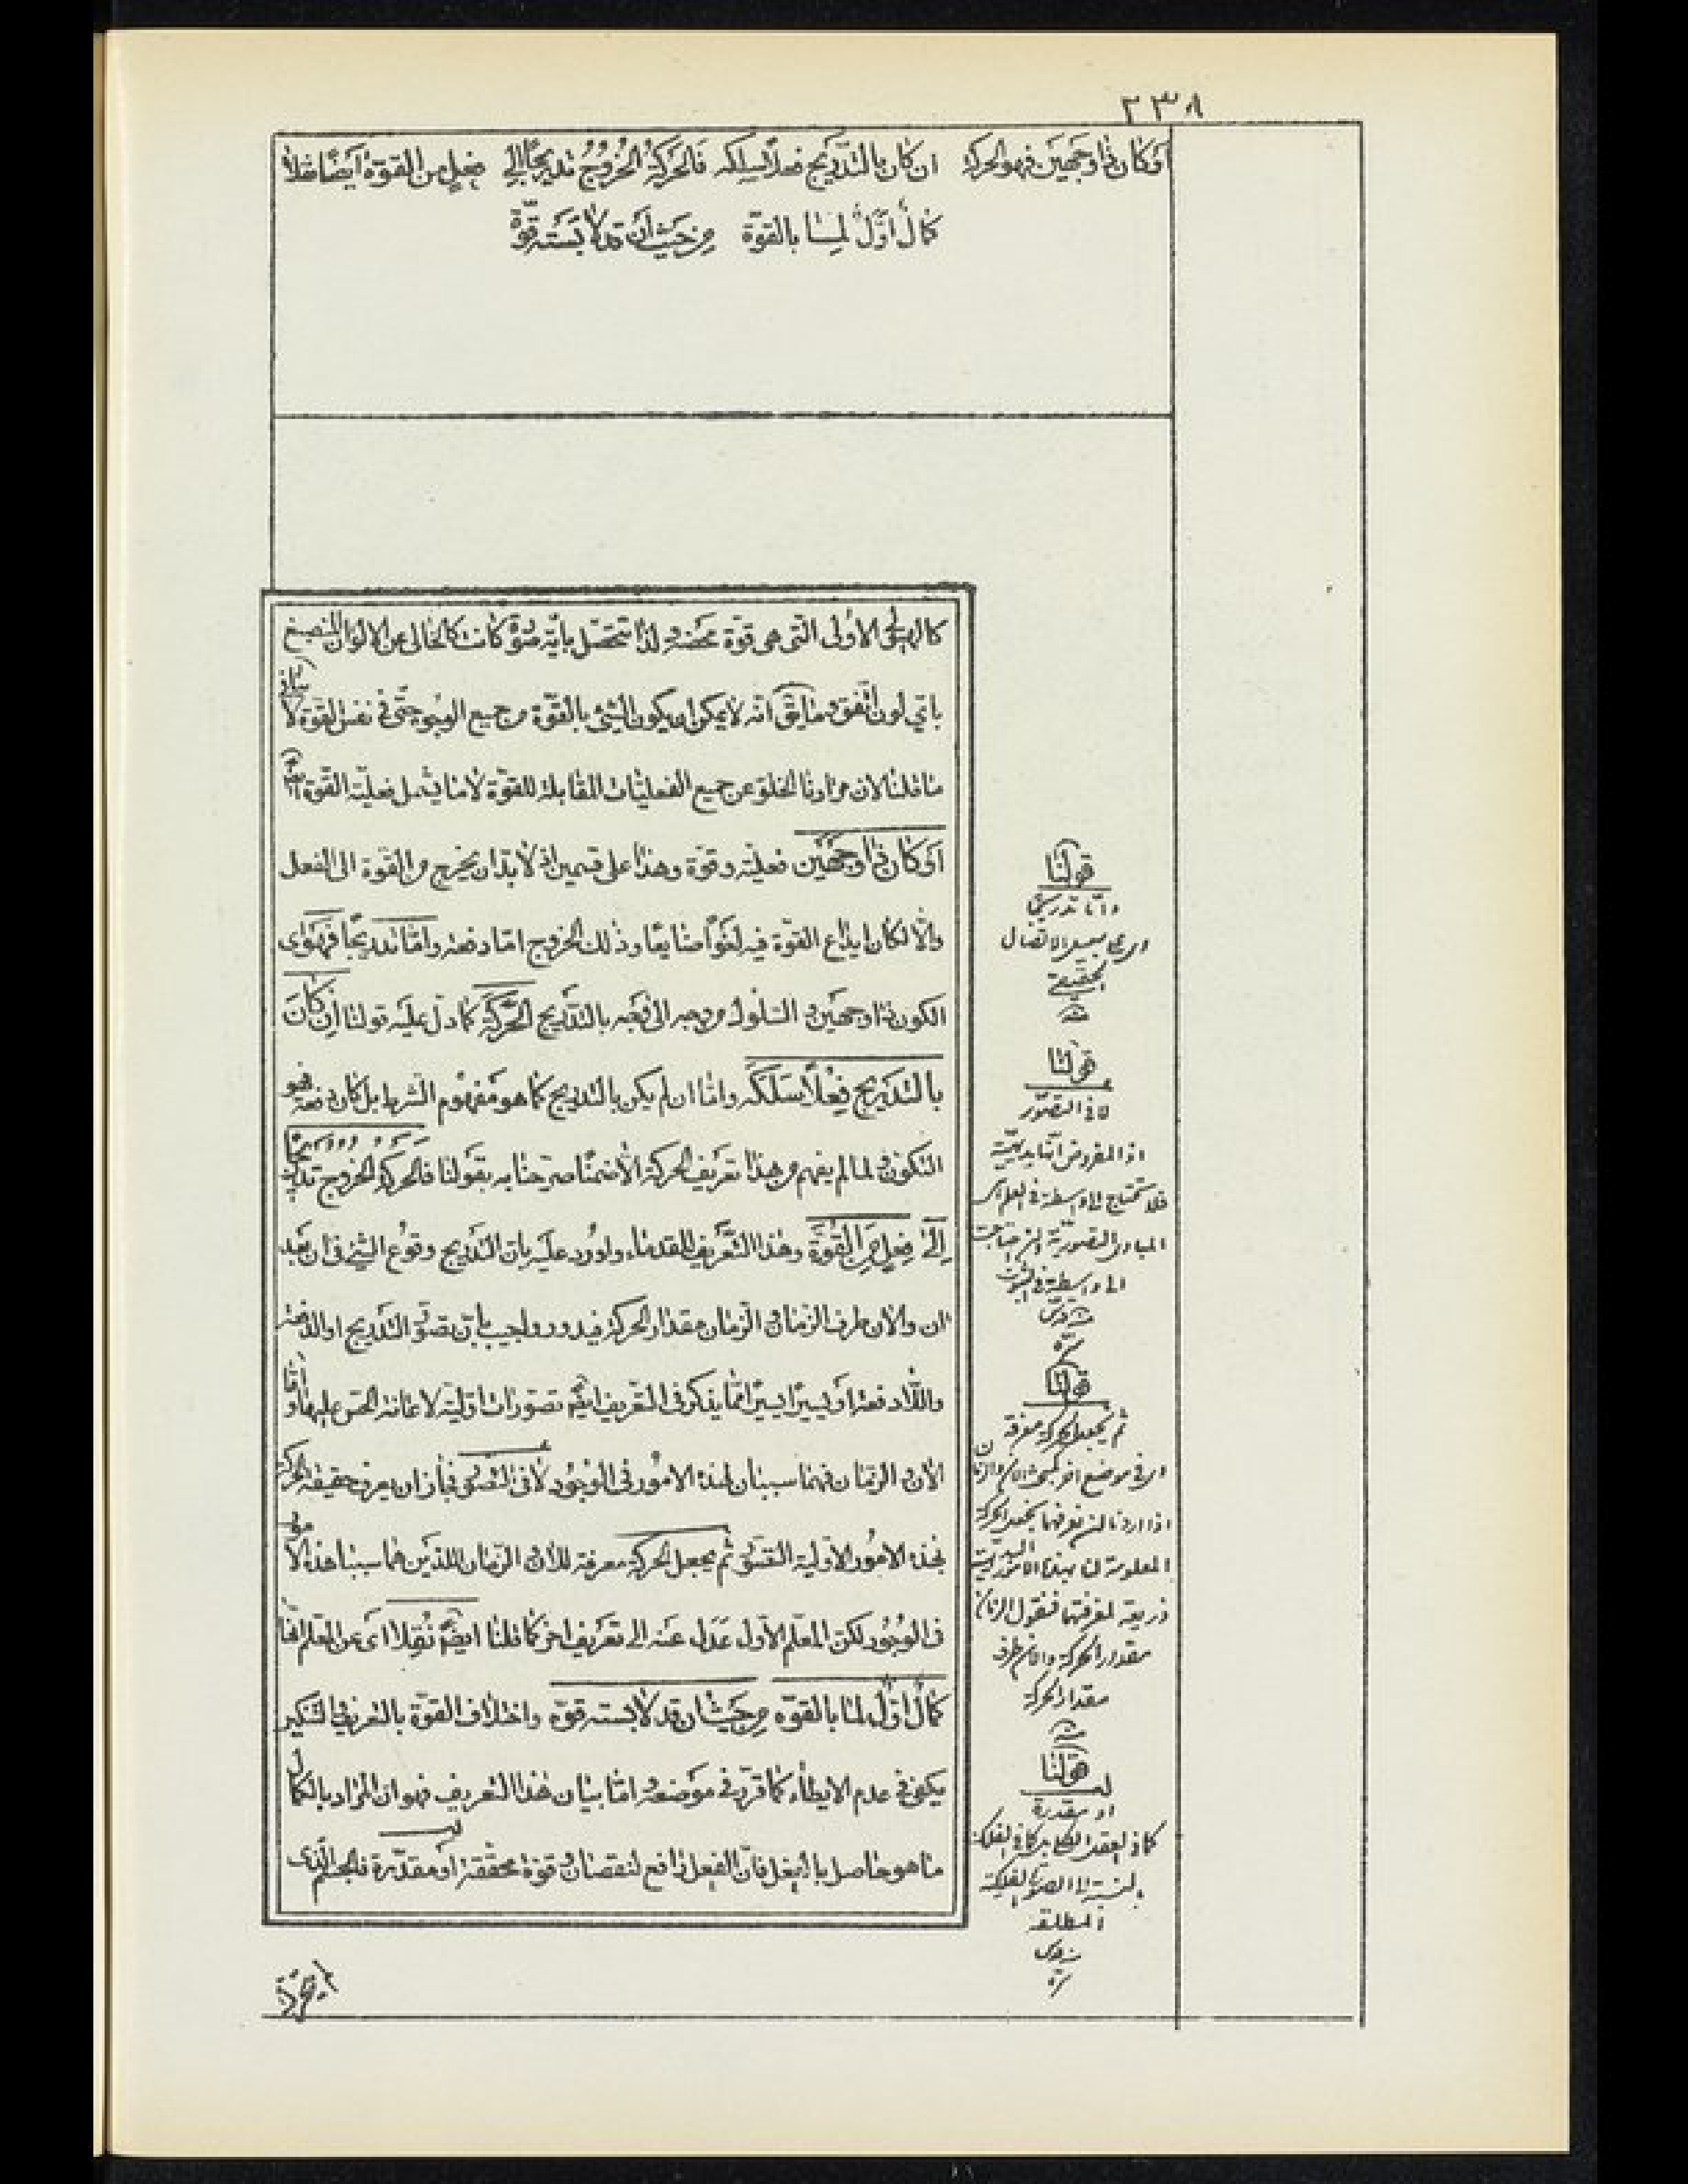 ٢٣٨
او كان ذا وجهين فهو الحركة ان كان بالتدريج فعلاً سلكه فَالحَرَكَةُ الخُرُوجُ تدريجًا الى فعلٍ من القوة ايضًا نقلا
كمالٌ اوّلٌ لِما بالقوّة مِن حَيثُ أن قد لابَسَته قوّة
كالهيولى الاولى التى هى قوّة محضة ولذا تتحصّل بايّة صورة كانت كالخالى عن الالوان المنصبغ
باى لون اتّفق وما يقَ انّه لا يمكن ان يكون الشئ بالقوّة من جميع الوجوه حتّى فى نفس القوة لا ينافى
ما قلنا لان مرادنا الخلوّ عن جميع الفعليّات المقابلة للقوّة لا ما يشمل فعليّة القوّة
اوَ كان ذا وجهَين فعليّة وقوّة وهذا على قسمين اذ لا بدّ ان يخرج من القوّة الى الفعل
والّا لكان ايداع القوّة فيه لغوًا ضايعًا وذلك الخروج امّا دفعة وامّا تدريجًا فهو اى
الكون ذا وجهين والسلوك من وجه الى وجه بالتدريج الحَرَكَة كما دلّ عليه قولنا اِن كانَ
بالتَدريج فِعْلاً سَلَكَه وامّا ان لم يكن بالتدريج كما هو مفهوم الشرط بل كان دفعة فهو
التكوّن ولمّا لم يفهم من هذا تعريف الحركة الّا ضمنًا صرّحنا به بقولنا فالحركة الخروج تدريجًا
اِلىٰ فِعلٍ مِنَ القُوّة وهذا التّعريف للقدماء واورد عليه بان التّدريج وقوع الشئ فى ان بعد
ان والان طرف الزمان والزمان مقدار الحركة فيدور واجيب بانّ تصوّر التّدريج او الدفعة
واللّادفعة او يسيرًا يسيرًا ممّا يذكر فى التّعريف ايضًا تصوّرات اوّليّة لاعانة الحسّ عليها وامّا
الان والزمان فهما سببان لهذه الامور فى الوجود لا فى التّصوّر فجاز ان يعرف حقيقة الحركة
بهذه الامور الاوليّة التصوّر ثمّ يجعل الحركة معرفة للان والزمان اللذَين هما سببا هذه الامور
فى الوجود لكن المعلّم الاوّل عَدَل عنه الى تعريف اخر كما قلنا ايضًا نُقِلا اى عن المعلّم انّها
كمالٌ اوّلٌ لما بالقوّة مِن حَيثُ ان قد لابسته قوّة واختلاف القوّة بالتعريف والتنكير
يكفى فى عدم الايطاء كما قرّر فى موضعه وامّا بيان هذا التعريف فهو ان المراد بالكمال
ما هو حاصل بالفعل فانّ الفعل رافع لنقصان وقوّة محقّقة او مقدّرة فالجسم الذى
قولنا
وامّا تدريجًا
اى على سبيل الاتصال
الحقيقى
منه
قولنا
لا فى التصوّر
اذ المفروض انّها بديهيّة
فلا تحتاج الى واسطة فى العلم اى
المبادى التصوّريّة وان احتاجت
الى واسطة فى الثبوت
منه قدس
سرّه
قولنا
ثم يجعل الحركة معرفة
اى فى موضع اخر كمبحث الان والزمان
اذا اردنا ان نعرفهما نجعل الحركة
المعلومة لنا بهذه الامور البديهيّة
ذريعة لمعرفتهما فنقول الزمان
مقدار الحركة والان طرف
مقدار الحركة
منه
قولنا
او مقدرة
كما فى
بالنسبة الى الصورة الفلكيّة
المطلقة
منه قدس
سرّه